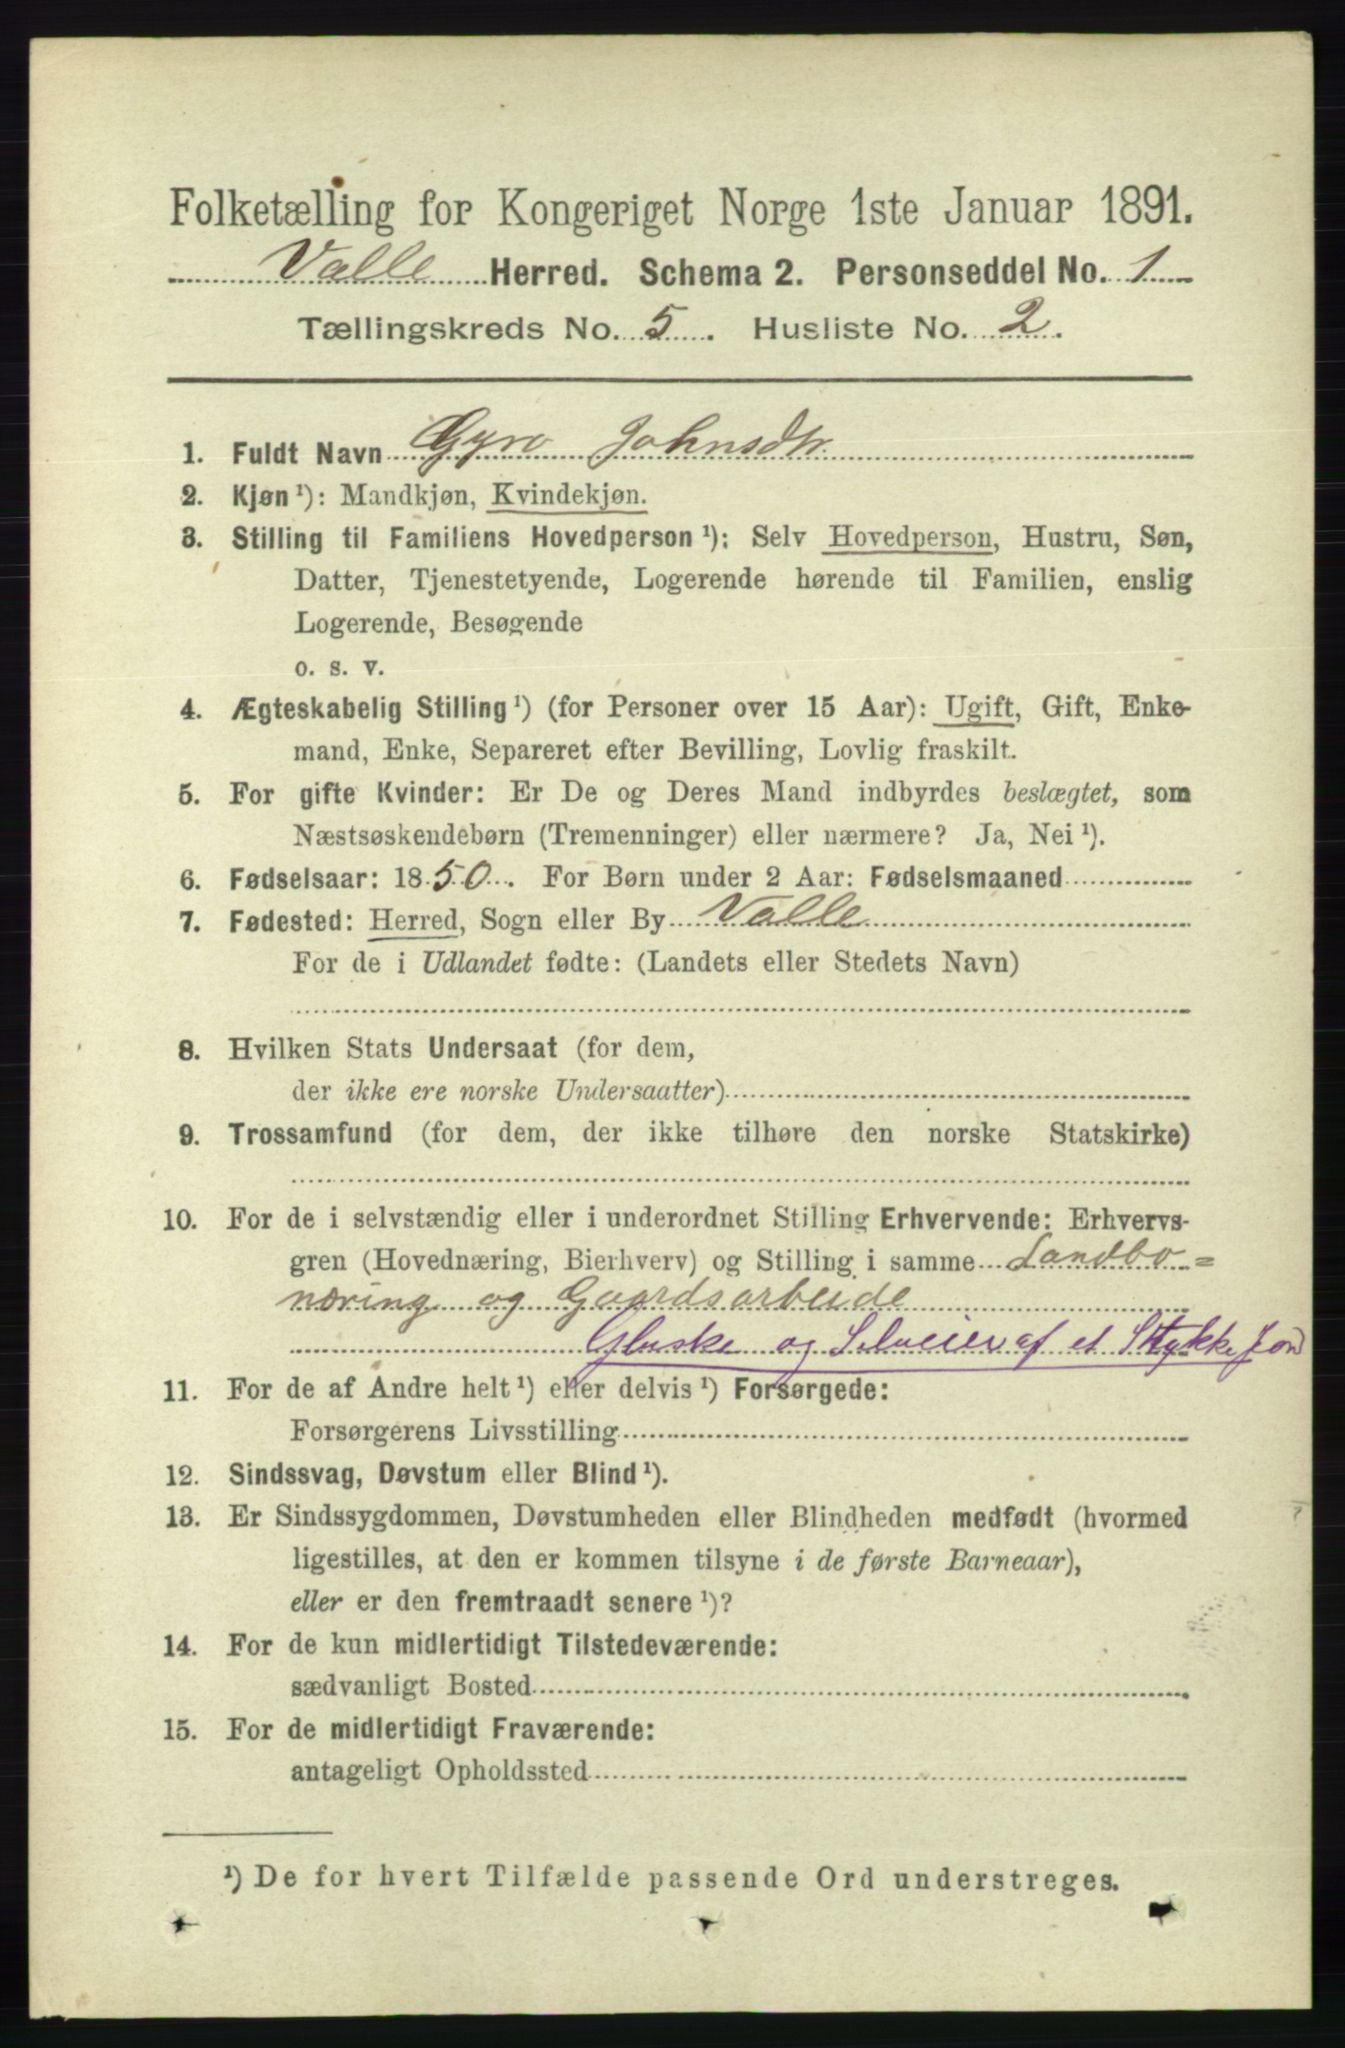 Folketælling for Kongeriget Norge 1ste Januar 1891.
Valle Herred. Schema 2. Personseddel No. 1
Tællingskreds No. 5. Husliste No. 2.
1. Fuldt Navn Gyro Johnsdtr.
2. Kjøn ¹): Mandkjøn, Kvindekjøn.
3. Stilling til Familiens Hovedperson ¹): Selv Hovedperson, Hustru, Søn,
Datter, Tjenestetyende, Logerende hørende til Familien, enslig
Logerende, Besøgende
o. s. v.
4. Ægteskabelig Stilling ¹) (for Personer over 15 Aar): Ugift, Gift, Enke-
mand, Enke, Separeret efter Bevilling, Lovlig fraskilt.
5. For gifte Kvinder: Er De og Deres Mand indbyrdes beslægtet, som
Næstsøskendebørn (Tremenninger) eller nærmere? Ja, Nei ¹).
6. Fødselsaar: 1850. For Børn under 2 Aar: Fødselsmaaned
7. Fødested: Herred, Sogn eller By Valle
For de i Udlandet fødte: (Landets eller Stedets Navn)
8. Hvilken Stats Undersaat (for dem,
der ikke ere norske Undersaatter)
9. Trossamfund (for dem, der ikke tilhøre den norske Statskirke)
10. For de i selvstændig eller i underordnet Stilling Erhvervende: Erhvervs-
gren (Hovednæring, Bierhverv) og Stilling i samme Landbo=
næring og Gaardsarbeide
og Selveier af et Stykke Jord
11. For de af Andre helt ¹) eller delvis ¹) Forsørgede:
Forsørgerens Livsstilling
12. Sindssvag, Døvstum eller Blind ¹).
13. Er Sindssygdommen, Døvstumheden eller Blindheden medfødt (hvormed
ligestilles, at den er kommen tilsyne i de første Barneaar),
eller er den fremtraadt senere ¹)?
14. For de kun midlertidigt Tilstedeværende:
sædvanligt Bosted
15. For de midlertidigt Fraværende:
antageligt Opholdssted
¹) De for hvert Tilfælde passende Ord understreges.